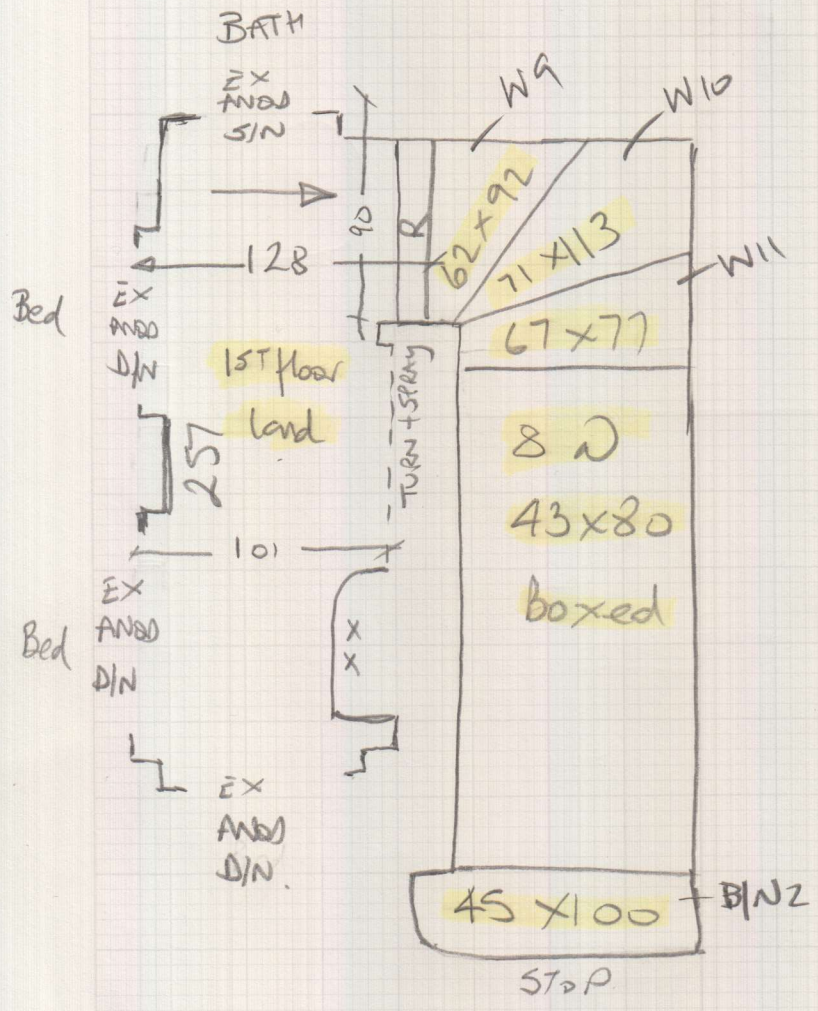 BATH
EX
ANOD
S/N
W9
W10
90
R
62 x 92
71 x 113
W11
128
Bed
EX
ANOD
D/N
1ST floor
land
67 x 77
TURN + SPRAY
257
8
43 x 80
Boxed
101
Bed
EX
ANOD
D/N
X
X
EX
ANOD
D/N.
45 x 100
B/N2
STOP